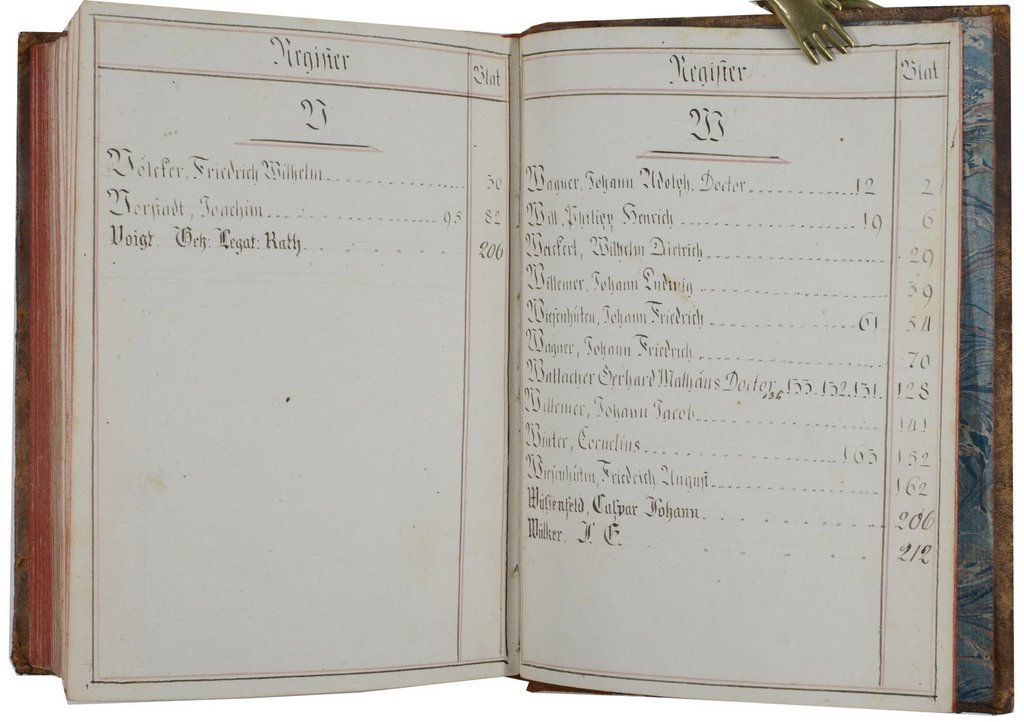 Register
Blat
V
Völcker, Friedrich Wilhelm 50
Vorstadt, Joachim 95 82
Voigt Geh: Legat: Rath 206
Register
Blat
W
Wagner, Johann Adolph. Doctor 12 2
Will, Philipp Henrich 19 6
Weickert, Wilhelm Dietrich 29
Willemer, Johann Ludwig 39
Wiesenhüten, Johann Friedrich 61 54
Wagner, Johann Friedrich 70
Wallacher Gerhard Mathäus Doctor 133. 132. 131. 128
136
Willemer, Johann Jacob 141
Winter, Cornelius 163 152
Wiesenhüten, Friedrich August 162
Wüstenfeld, Caspar Johann 206
Wülker, J. E. 212